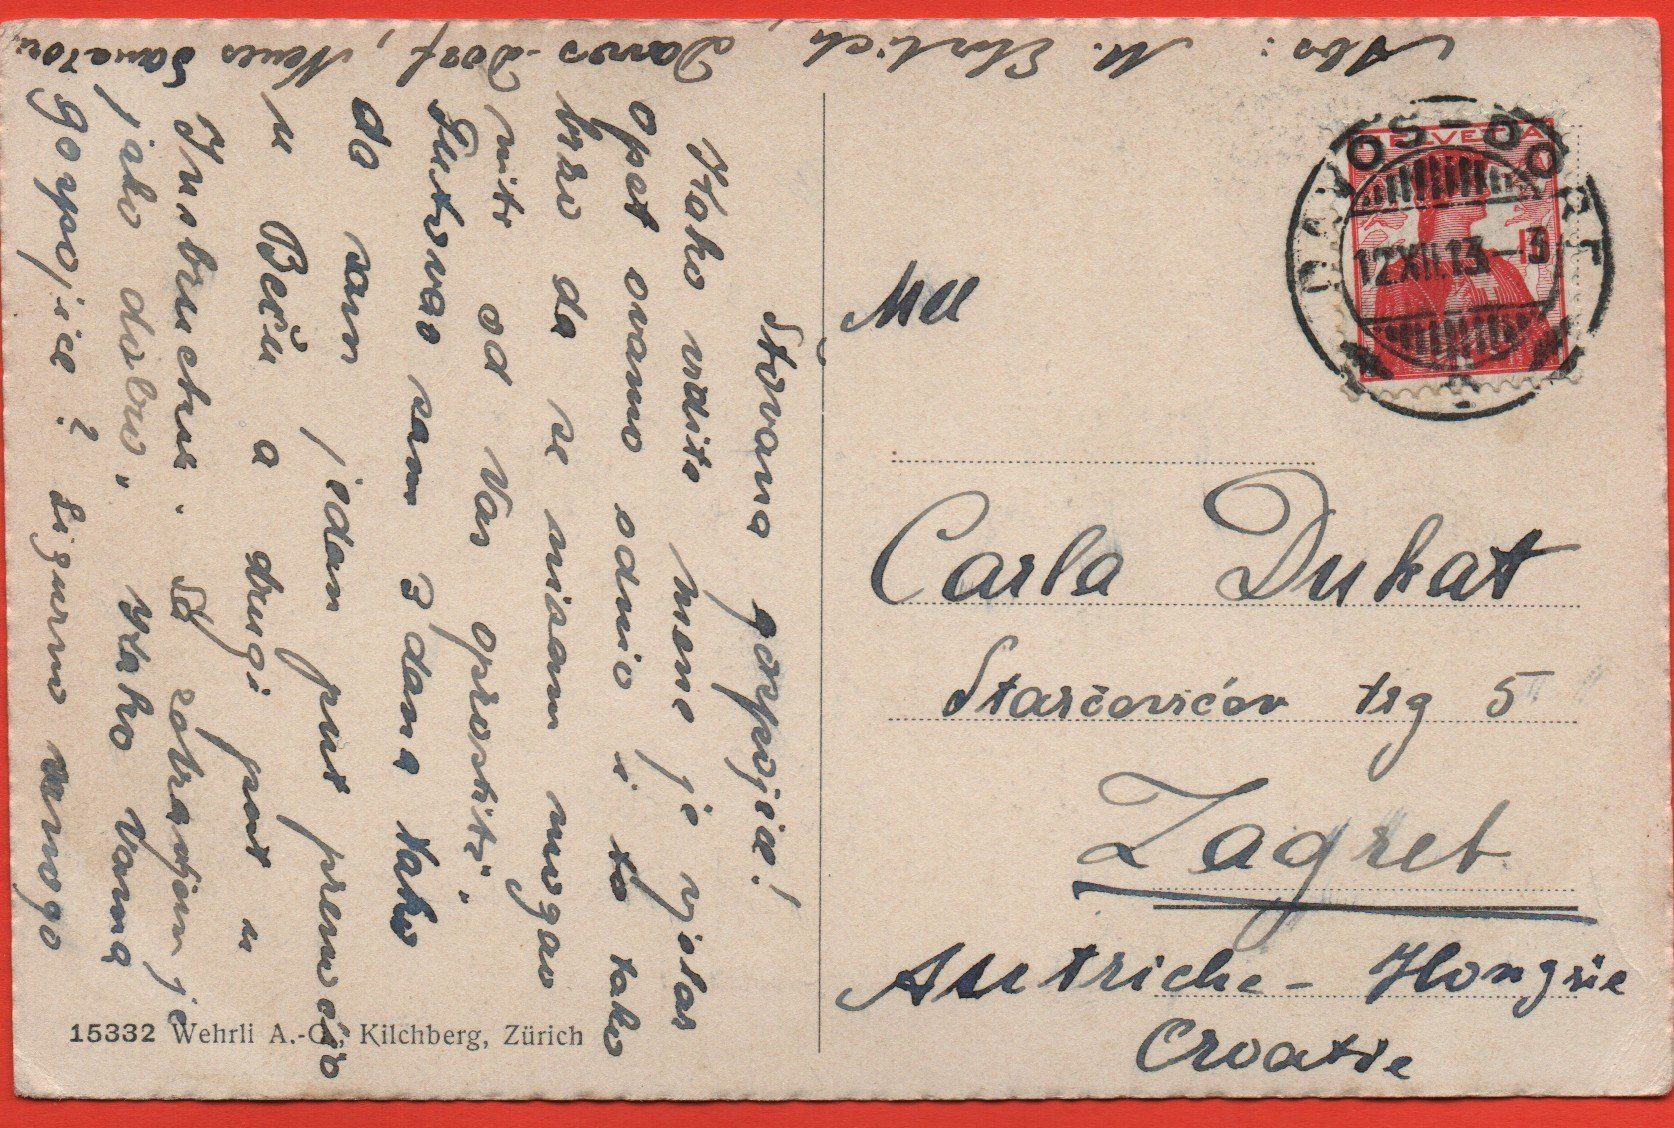 Abs: M. Ehrlich,
Davos-Dorf, Neues Sanator.
Štovana gospojice!
Kako vidite mene je vjetar
opet ovamo odnio i to tako
brzo da se nisam mogao
niti od Vas oprostiti.
Putovao sam 3 dana tako
da sam jedan put prenoćio
u Beču a drugi put u
Insbrucku. Sa zdravljem je
"jako dobro". Kako Vama
gospojice? Sigurno mnogo
15332 Wehrli A.-G., Kilchberg, Zürich
HELVETIA
DAVOS-DORF
12.XII.13.-13
Mll
Carla Dukat
Starčevićev trg 5
Zagreb
Autriche-Hongrie
Croatie